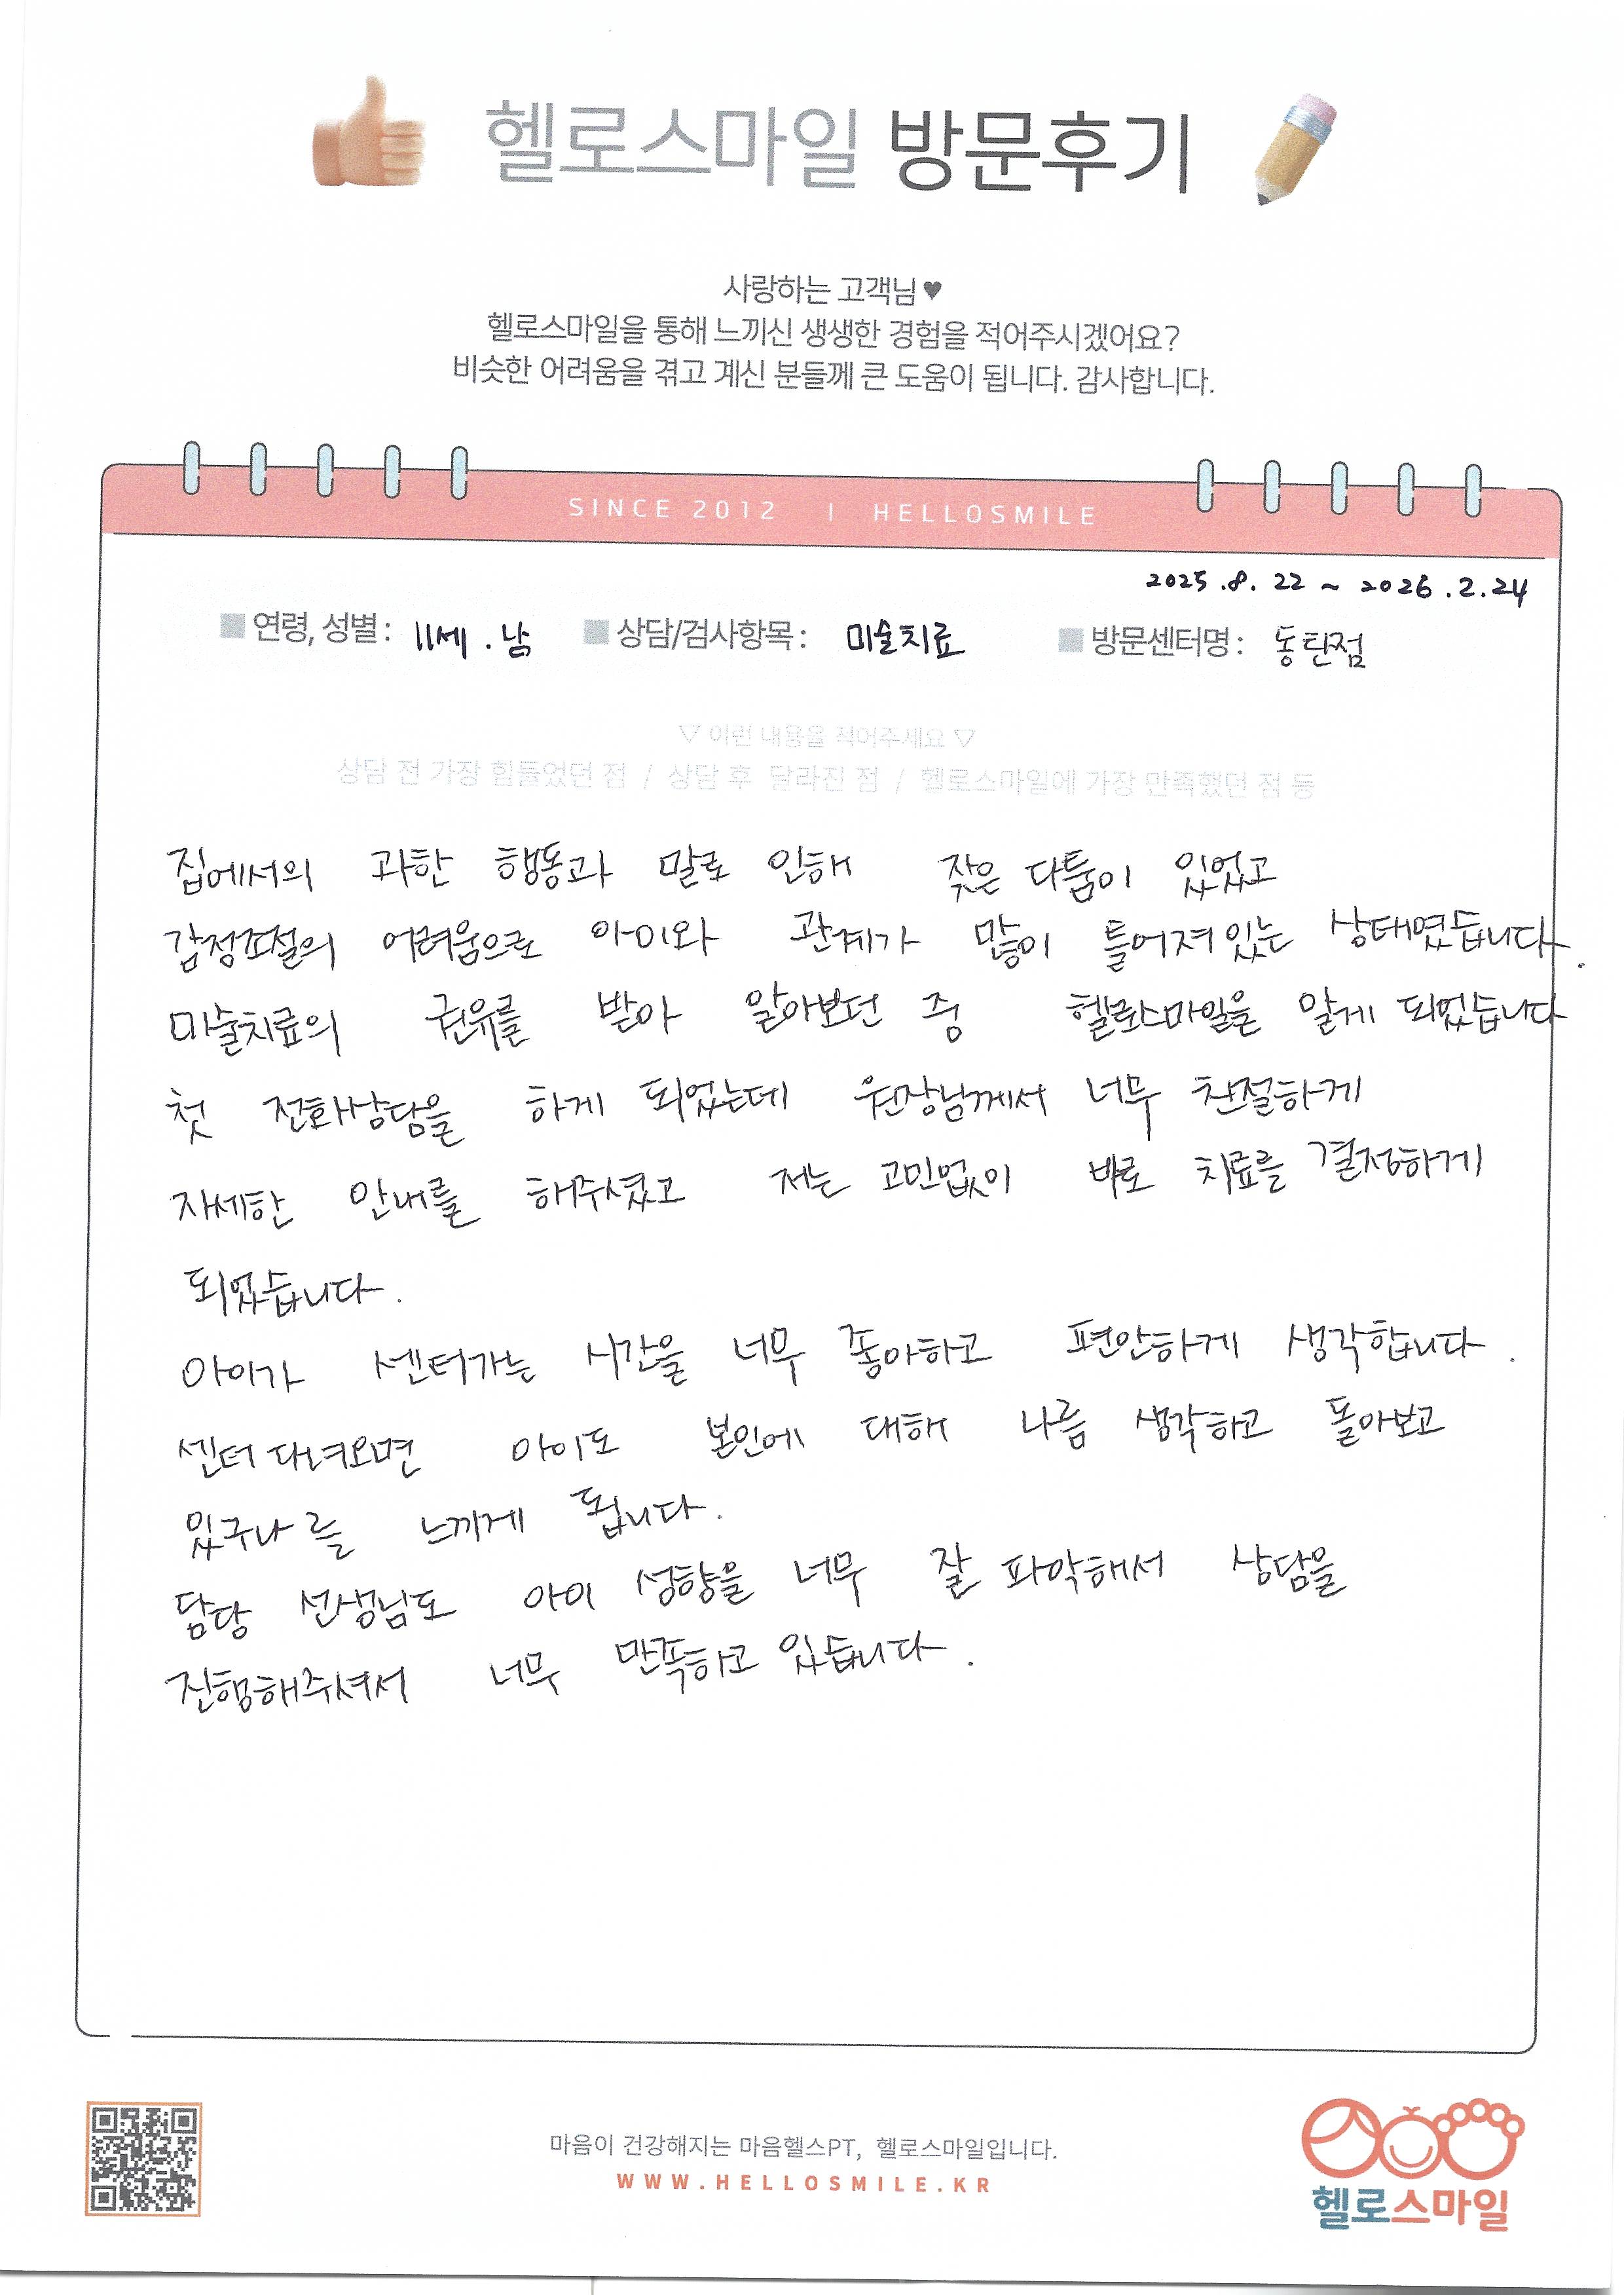 헬로스마일 방문후기
사랑하는 고객님♥
헬로스마일을 통해 느끼신 생생한 경험을 적어주시겠어요?
비슷한 어려움을 겪고 계신 분들께 큰 도움이 됩니다. 감사합니다.
SINCE 2012 | HELLOSMILE
2025.8.22 ~ 2026.2.24
연령, 성별 : 11세.남 상담/검사항목 : 미술치료 방문센터명 : 동탄점
▽ 이런 내용을 적어주세요 ▽
상담 전 가장 힘들었던 점 / 상담 후 달라진 점 / 헬로스마일에 가장 만족했던 점 등
집에서의 과한 행동과 말로 인해 잦은 다툼이 있었고
감정조절의 어려움으로 아이와 관계가 많이 틀어져있는 상태였습니다.
미술치료의 권유를 받아 알아보던 중 헬로스마일을 알게 되었습니다
첫 전화상담을 하게 되었는데 원장님께서 너무 친절하게
자세한 안내를 해주셨고 저는 고민없이 바로 치료를 결정하게
되었습니다.
아이가 센터가는 시간을 너무 좋아하고 편안하게 생각합니다.
센터 다녀오면 아이도 본인에 대해 나름 생각하고 돌아보고
있구나를 느끼게 됩니다.
담당 선생님도 아이 성향을 너무 잘 파악해서 상담을
진행해주셔서 너무 만족하고 있습니다.
마음이 건강해지는 마음헬스PT, 헬로스마일입니다.
WWW.HELLOSMILE.KR
헬로스마일